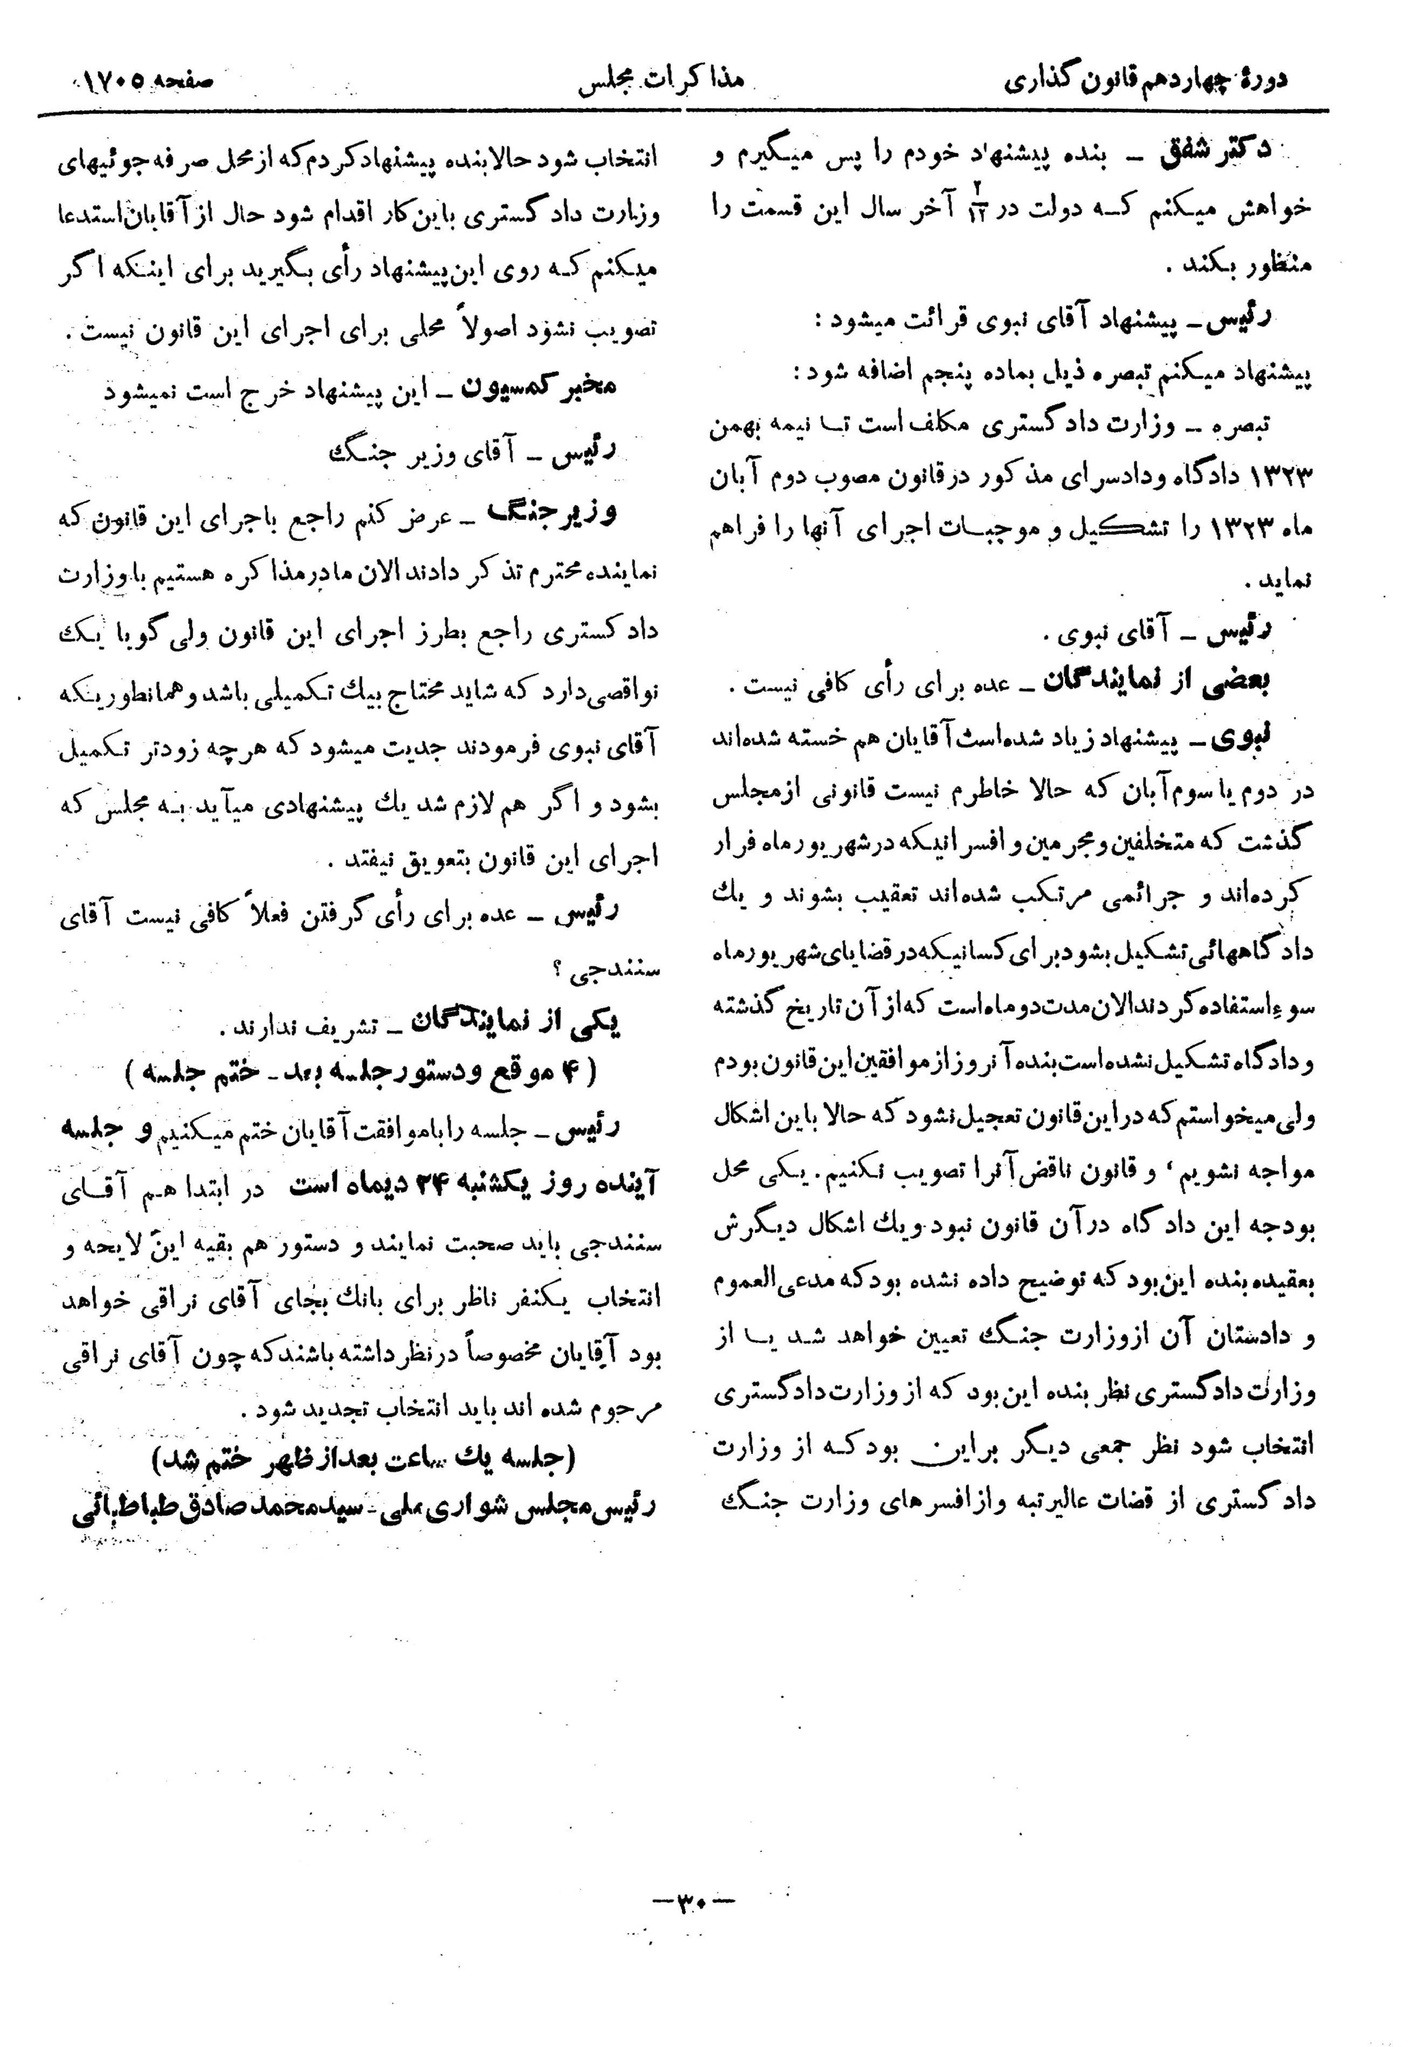 دورهٔ چهاردهم قانون گذاری
مذاکرات مجلس
صفحه ۱۷۰۵
دکتر شفق ـ بنده پیشنهاد خودم را پس میگیرم و
خواهش میکنم که دولت در ۲/۱۲ آخر سال این قسمت را
منظور بکند .
رئیس ـ پیشنهاد آقای نبوی قرائت میشود :
پیشنهاد میکنم تبصره ذیل بماده پنجم اضافه شود :
تبصره ـ وزارت دادگستری مکلف است تا نیمه بهمن
۱۳۲۳ دادگاه ودادسرای مذکور درقانون مصوب دوم آبان
ماه ۱۳۲۳ را تشکیل و موجبات اجرای آنها را فراهم
نماید .
رئیس ـ آقای نبوی .
بعضی از نمایندگان ـ عده برای رأی کافی نیست .
نبوی ـ پیشنهاد زیاد شده‌است آقایان هم خسته شده‌اند
در دوم یا سوم آبان که حالا خاطرم نیست قانونی ازمجلس
گذشت که متخلفین ومجرمین و افسرانیکه درشهریورماه فرار
کرده‌اند و جرائمی مرتکب شده‌اند تعقیب بشوند و یك
دادگاههائی تشکیل بشود برای کسانیکه در قضایای شهریورماه
سوءاستفاده کردند الان مدت دوماه‌است که از آن تاریخ گذشته
و دادگاه تشکیل نشده است بنده آنروز از موافقین این قانون بودم
ولی میخواستم که دراین قانون تعجیل نشود که حالا باین اشکال
مواجه نشویم ، و قانون ناقض آنرا تصویب نکنیم . یکی محل
بودجه این دادگاه درآن قانون نبود ویك اشکال دیگرش
بعقیده بنده این بود که توضیح داده نشده بود که مدعی العموم
و دادستان آن ازوزارت جنگ تعیین خواهد شد یا از
وزارت دادگستری نظر بنده این بود که از وزارت دادگستری
انتخاب شود نظر جمعی دیگر براین بود که از وزارت
دادگستری از قضات عالیرتبه و از افسرهای وزارت جنگ
انتخاب شود حالا بنده پیشنهاد کردم که از محل صرفه جوئیهای
وزارت دادگستری باین کار اقدام شود حال از آقایان استدعا
میکنم که روی این پیشنهاد رأی بگیرید برای اینکه اگر
تصویب نشود اصولاً محلی برای اجرای این قانون نیست .
مخبر کمسیون ـ این پیشنهاد خرج است نمیشود
رئیس ـ آقای وزیر جنگ
وزیر جنگ ـ عرض کنم راجع باجرای این قانون که
نماینده محترم تذکر دادند الان ما درمذاکره هستیم با وزارت
دادگستری راجع بطرز اجرای این قانون ولی گویا یك
نواقصی دارد که شاید محتاج بیك تکمیلی باشد وهمانطوریکه
آقای نبوی فرمودند جدیت میشود که هرچه زودتر تکمیل
بشود و اگر هم لازم شد یك پیشنهادی میآید به مجلس که
اجرای این قانون بتعویق نیفتد .
رئیس ـ عده برای رأی گرفتن فعلاً کافی نیست آقای
سنندجی ؟
یکی از نمایندگان ـ تشریف ندارند .
( ۴ موقع ودستور جلسه بعد ـ ختم جلسه )
رئیس ـ جلسه را باموافقت آقایان ختم میکنیم و جلسه
آینده روز یکشنبه ۲۴ دیماه است در ابتدا هم آقای
سنندجی باید صحبت نمایند و دستور هم بقیه این لایحه و
انتخاب یکنفر ناظر برای بانك بجای آقای نراقی خواهد
بود آقایان مخصوصاً درنظر داشته باشند که چون آقای نراقی
مرحوم شده اند باید انتخاب تجدید شود .
(جلسه یك ساعت بعد از ظهر ختم شد)
رئیس مجلس شورای ملی ـ سید محمد صادق طباطبائی
—۳۰—